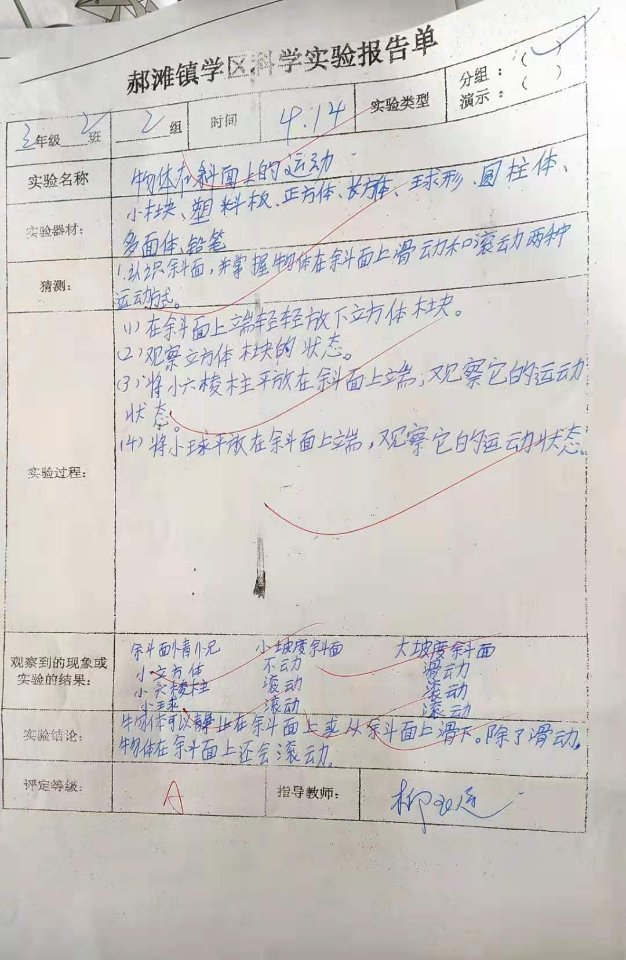 郝滩镇学区科学实验报告单
三年级 2 班 2 组 时间 4.14 实验类型 分组:(✓)
演示:( )
实验名称 物体在斜面上的运动
实验器材: 小木块、塑料板、正方体、长方体、球形、圆柱体、
多面体、铅笔
猜测: 1.认识斜面,并掌握物体在斜面上滑动和滚动两种
运动方式。
实验过程:
(1)在斜面上端轻轻放下立方体木块。
(2)观察立方体木块的状态。
(3)将小六棱柱平放在斜面上端,观察它的运动
状态。
(4)将小球平放在斜面上端,观察它的运动状态。
观察到的现象或
实验的结果:
斜面情况 小坡度斜面 大坡度斜面
小立方体 不动 滑动
小六棱柱 滚动 滚动
小球 滚动 滚动
实验结论: 物体可以静止在斜面上或从斜面上滑下。除了滑动,
物体在斜面上还会滚动。
评定等级: A 指导教师: 柳